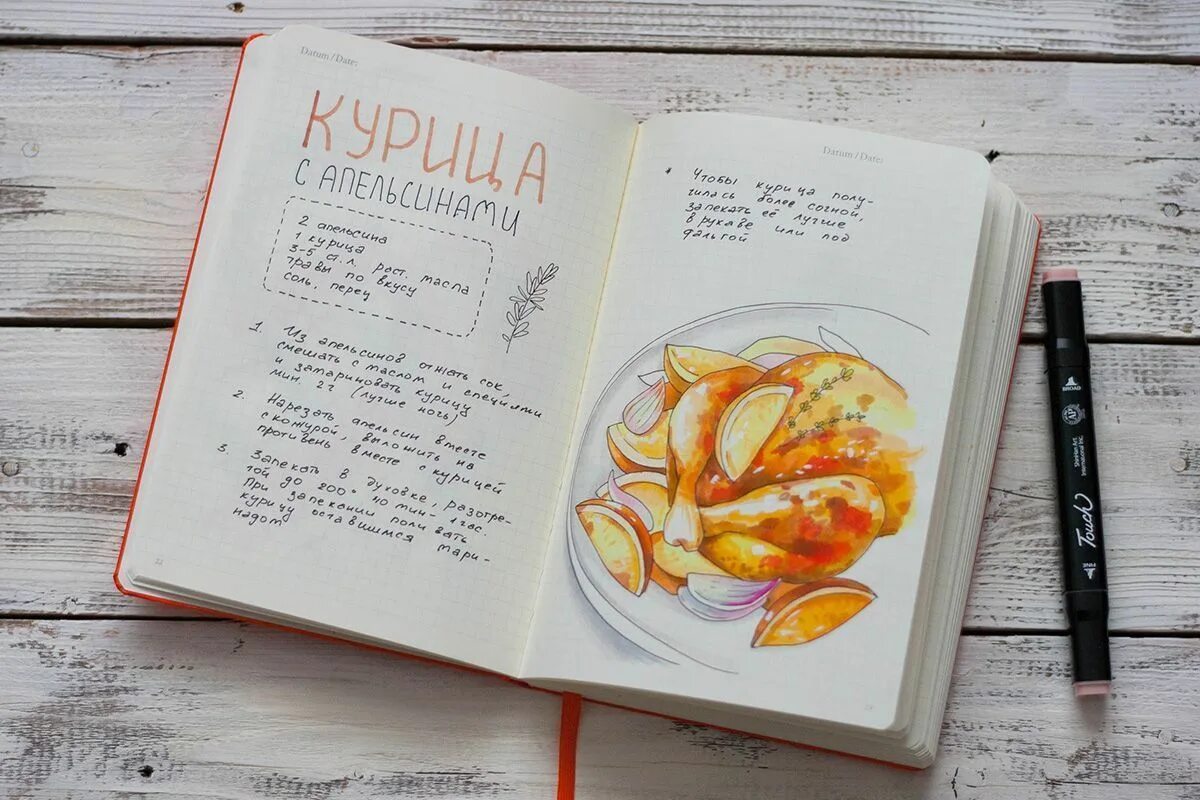 Datum / Date:
КУРИЦА
С АПЕЛЬСИНАМИ
2 апельсина
1 курица
3-5 ст.л. раст. масла
травы по вкусу
соль, перец
1. Из апельсинов отжать сок,
смешать с маслом и специями
и замариновать курицу
мин. 2ч (лучше ночь)
2. Нарезать апельсин вместе
с кожурой, выложить на
противень вместе с курицей
3. Запекать в духовке, разогре-
той до 200° 40 мин - 1 час.
При запекании поливать
курицу оставшимся мари-
надом
22
Datum / Date:
* Чтобы курица полу-
чилась более сочной,
запекать её лучше
в рукаве или под
фальгой
BROAD
AP
ShinHan Art
International Inc.
Touch
FINE